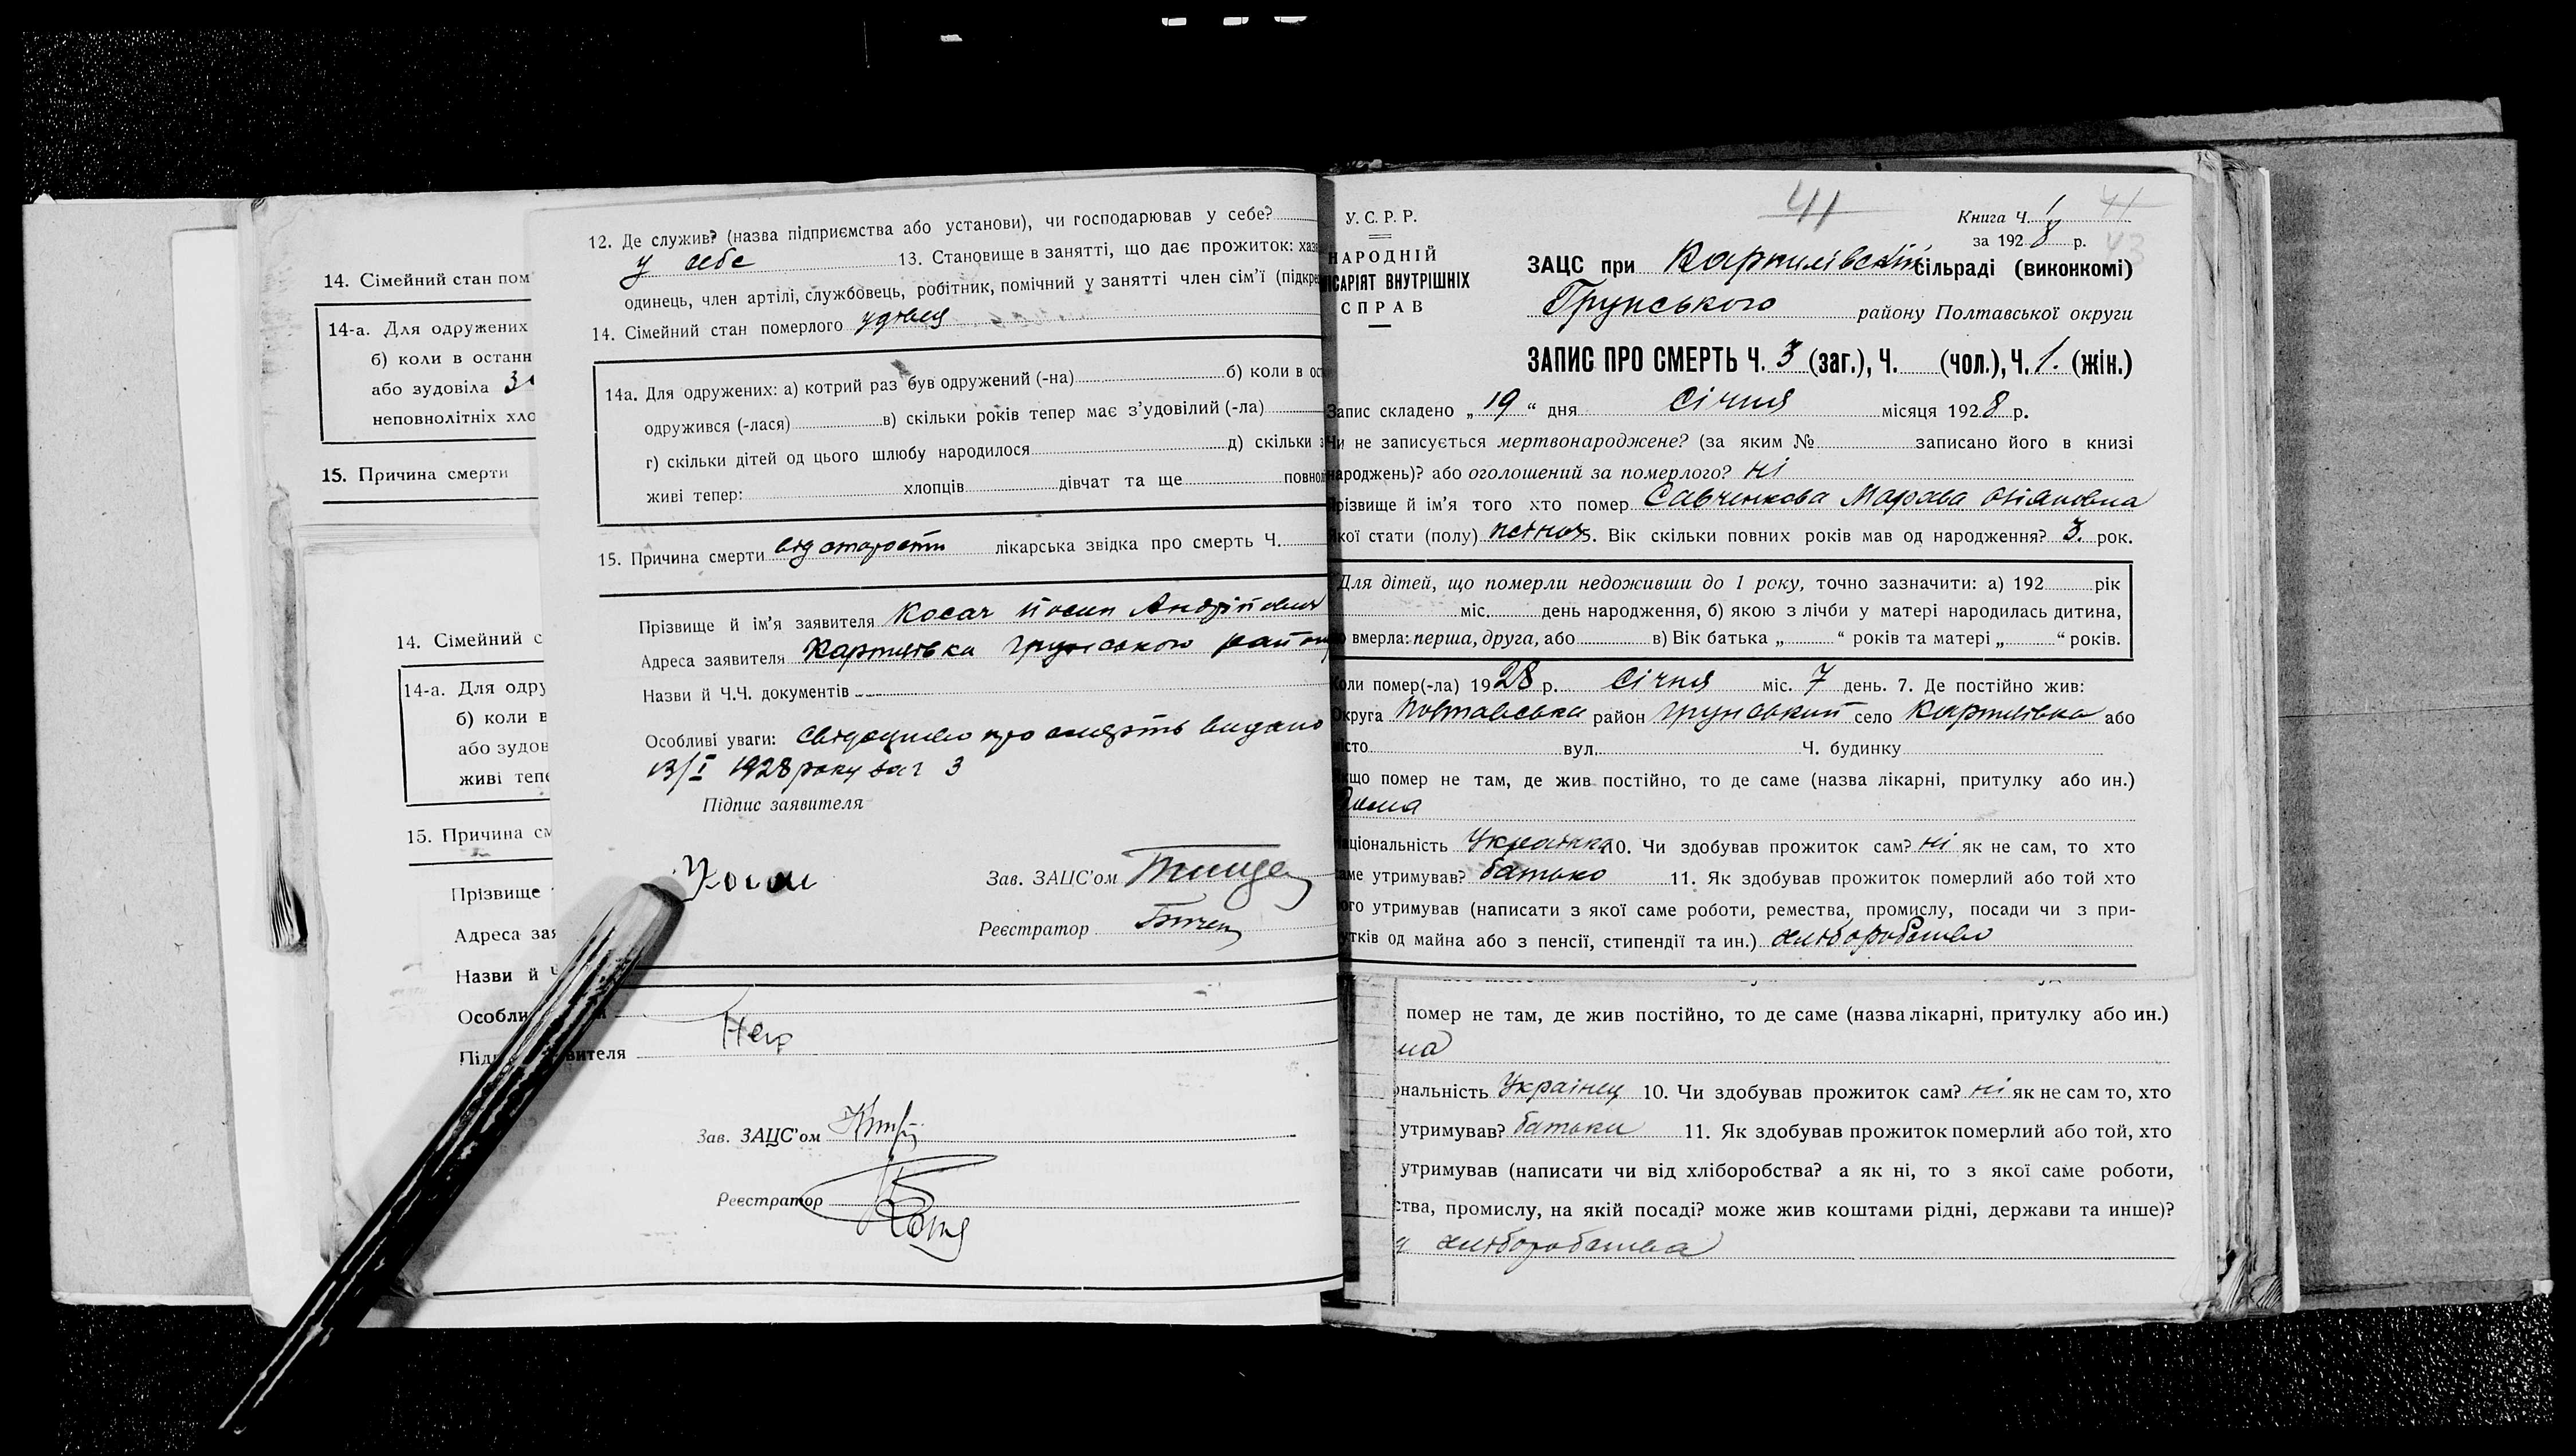 14. Сімейний стан пом
14-а. Для одружених
б) коли в останн
або зудовіла 3
неповнолітніх хло
15. Причина смерти
14. Сімейний с
14-а. Для одру
б) коли в
або зудов
живі тепе
15. Причина см
Прізвище
Адреса зая
Назви й Ч
Особли
12. Де служив? (назва підприємства або установи), чи господарював у себе?
у себе 13. Становище в занятті, що дає прожиток: хазя
одинець, член артілі, службовець, робітник, помічний у занятті член сім'ї (підкре
14. Сімейний стан померлого удвець
14а. Для одружених: а) котрий раз був одружений (-на) б) коли в ос
одружився (-лася) в) скільки років тепер має з'удовілий (-ла)
г) скільки дітей од цього шлюбу народилося д) скільки з
живі тепер: хлопців дівчат та ще повнол
15. Причина смерти від старости лікарська звідка про смерть Ч.
Прізвище й ім'я заявителя Косач Йосип Андрійович
Адреса заявителя Карпилівка Грунського району
Назви й Ч.Ч. документів
Особливі уваги: свідоцтво про смерть видано
13/I 1928 року за ч 3
Підпис заявителя
Зав. ЗАЦС'ом
Реєстратор
Підп вителя
Зав. ЗАЦС'ом
Реєстратор
У. С. Р. Р.
НАРОДНІЙ
ІСАРІЯТ ВНУТРІШНІХ
СПРАВ
41
41
43
Книга Ч. 1
за 1928 р.
ЗАЦС при Карпилівській сільраді (виконкомі)
Грунського району Полтавської округи
ЗАПИС ПРО СМЕРТЬ Ч. 3 (заг.), Ч. (чол.), Ч. 1. (жін.)
Запис складено „19“ дня Січня місяця 1928 р.
Чи не записується мертвонароджене? (за яким № записано його в книзі
народжень)? або оголошений за померлого? ні
Прізвище й ім'я того хто помер Савченкова
Якої стати (полу) 5. Вік скільки повних років мав од народження? 3. рок.
Для дітей, що померли недоживши до 1 року, точно зазначити: а) 192 рік
міс. день народження, б) якою з лічби у матері народилась дитина,
о вмерла: перша, друга, або в) Вік батька „ “ років та матері „ “ років.
Коли помер(-ла) 1928 р. Січня міс. 7 день. 7. Де постійно жив:
Округа Полтавська район Грунський село Карпилівка або
місто вул. Ч. будинку
що помер не там, де жив постійно, то де саме (назва лікарні, притулку або ин.)
Дома
Національність Українка 10. Чи здобував прожиток сам? ні як не сам, то хто
саме утримував? батько 11. Як здобував прожиток померлий або той хто
ого утримував (написати з якої саме роботи, ремества, промислу, посади чи з при-
утків од майна або з пенсії, стипендії та ин.) хліборобство
помер не там, де жив постійно, то де саме (назва лікарні, притулку або ин.)
ма
ональність Українец 10. Чи здобував прожиток сам? ні як не сам то, хто
утримував? батьки 11. Як здобував прожиток померлий або той, хто
утримував (написати чи від хліборобства? а як ні, то з якої саме роботи,
ства, промислу, на якій посаді? може жив коштами рідні, держави та инше)?
хліборобства